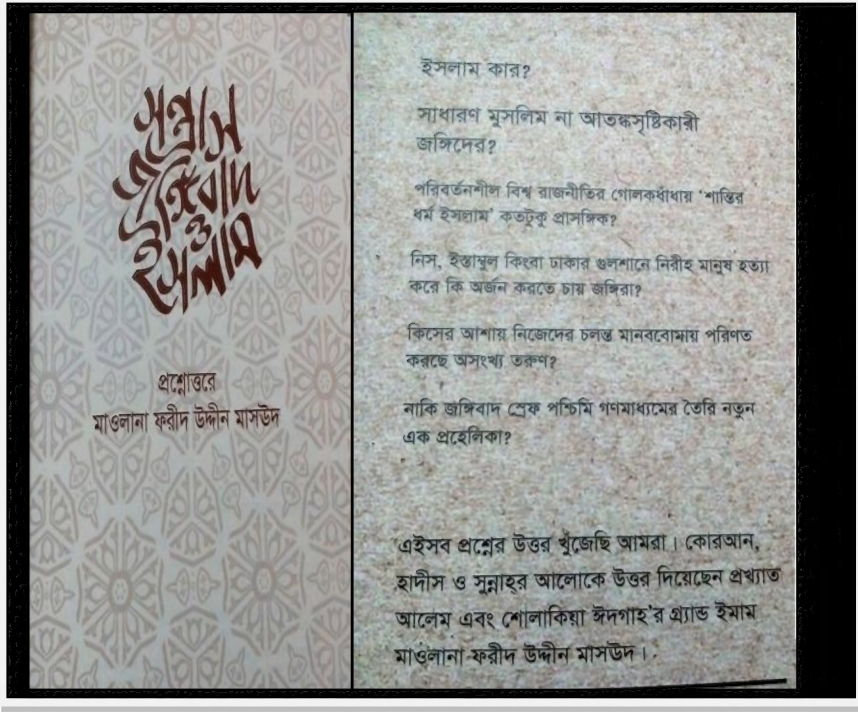 সন্ত্রাস
জঙ্গিবাদ
ও
ইসলাম
প্রশ্নোত্তরে
মাওলানা ফরীদ উদ্দীন মাসঊদ
ইসলাম কার?
সাধারণ মুসলিম না আতঙ্কসৃষ্টিকারী
জঙ্গিদের?
পরিবর্তনশীল বিশ্ব রাজনীতির গোলকধাঁধায় ‘শান্তির
ধর্ম ইসলাম’ কতটুকু প্রাসঙ্গিক?
নিস, ইস্তাম্বুল কিংবা ঢাকার গুলশানে নিরীহ মানুষ হত্যা
করে কি অর্জন করতে চায় জঙ্গিরা?
কিসের আশায় নিজেদের চলন্ত মানববোমায় পরিণত
করছে অসংখ্য তরুণ?
নাকি জঙ্গিবাদ স্রেফ পশ্চিমি গণমাধ্যমের তৈরি নতুন
এক প্রহেলিকা?
এইসব প্রশ্নের উত্তর খুঁজেছি আমরা। কোরআন,
হাদীস ও সুন্নাহ্‌র আলোকে উত্তর দিয়েছেন প্রখ্যাত
আলেম এবং শোলাকিয়া ঈদগাহ’র গ্র্যান্ড ইমাম
মাওলানা ফরীদ উদ্দীন মাসঊদ।